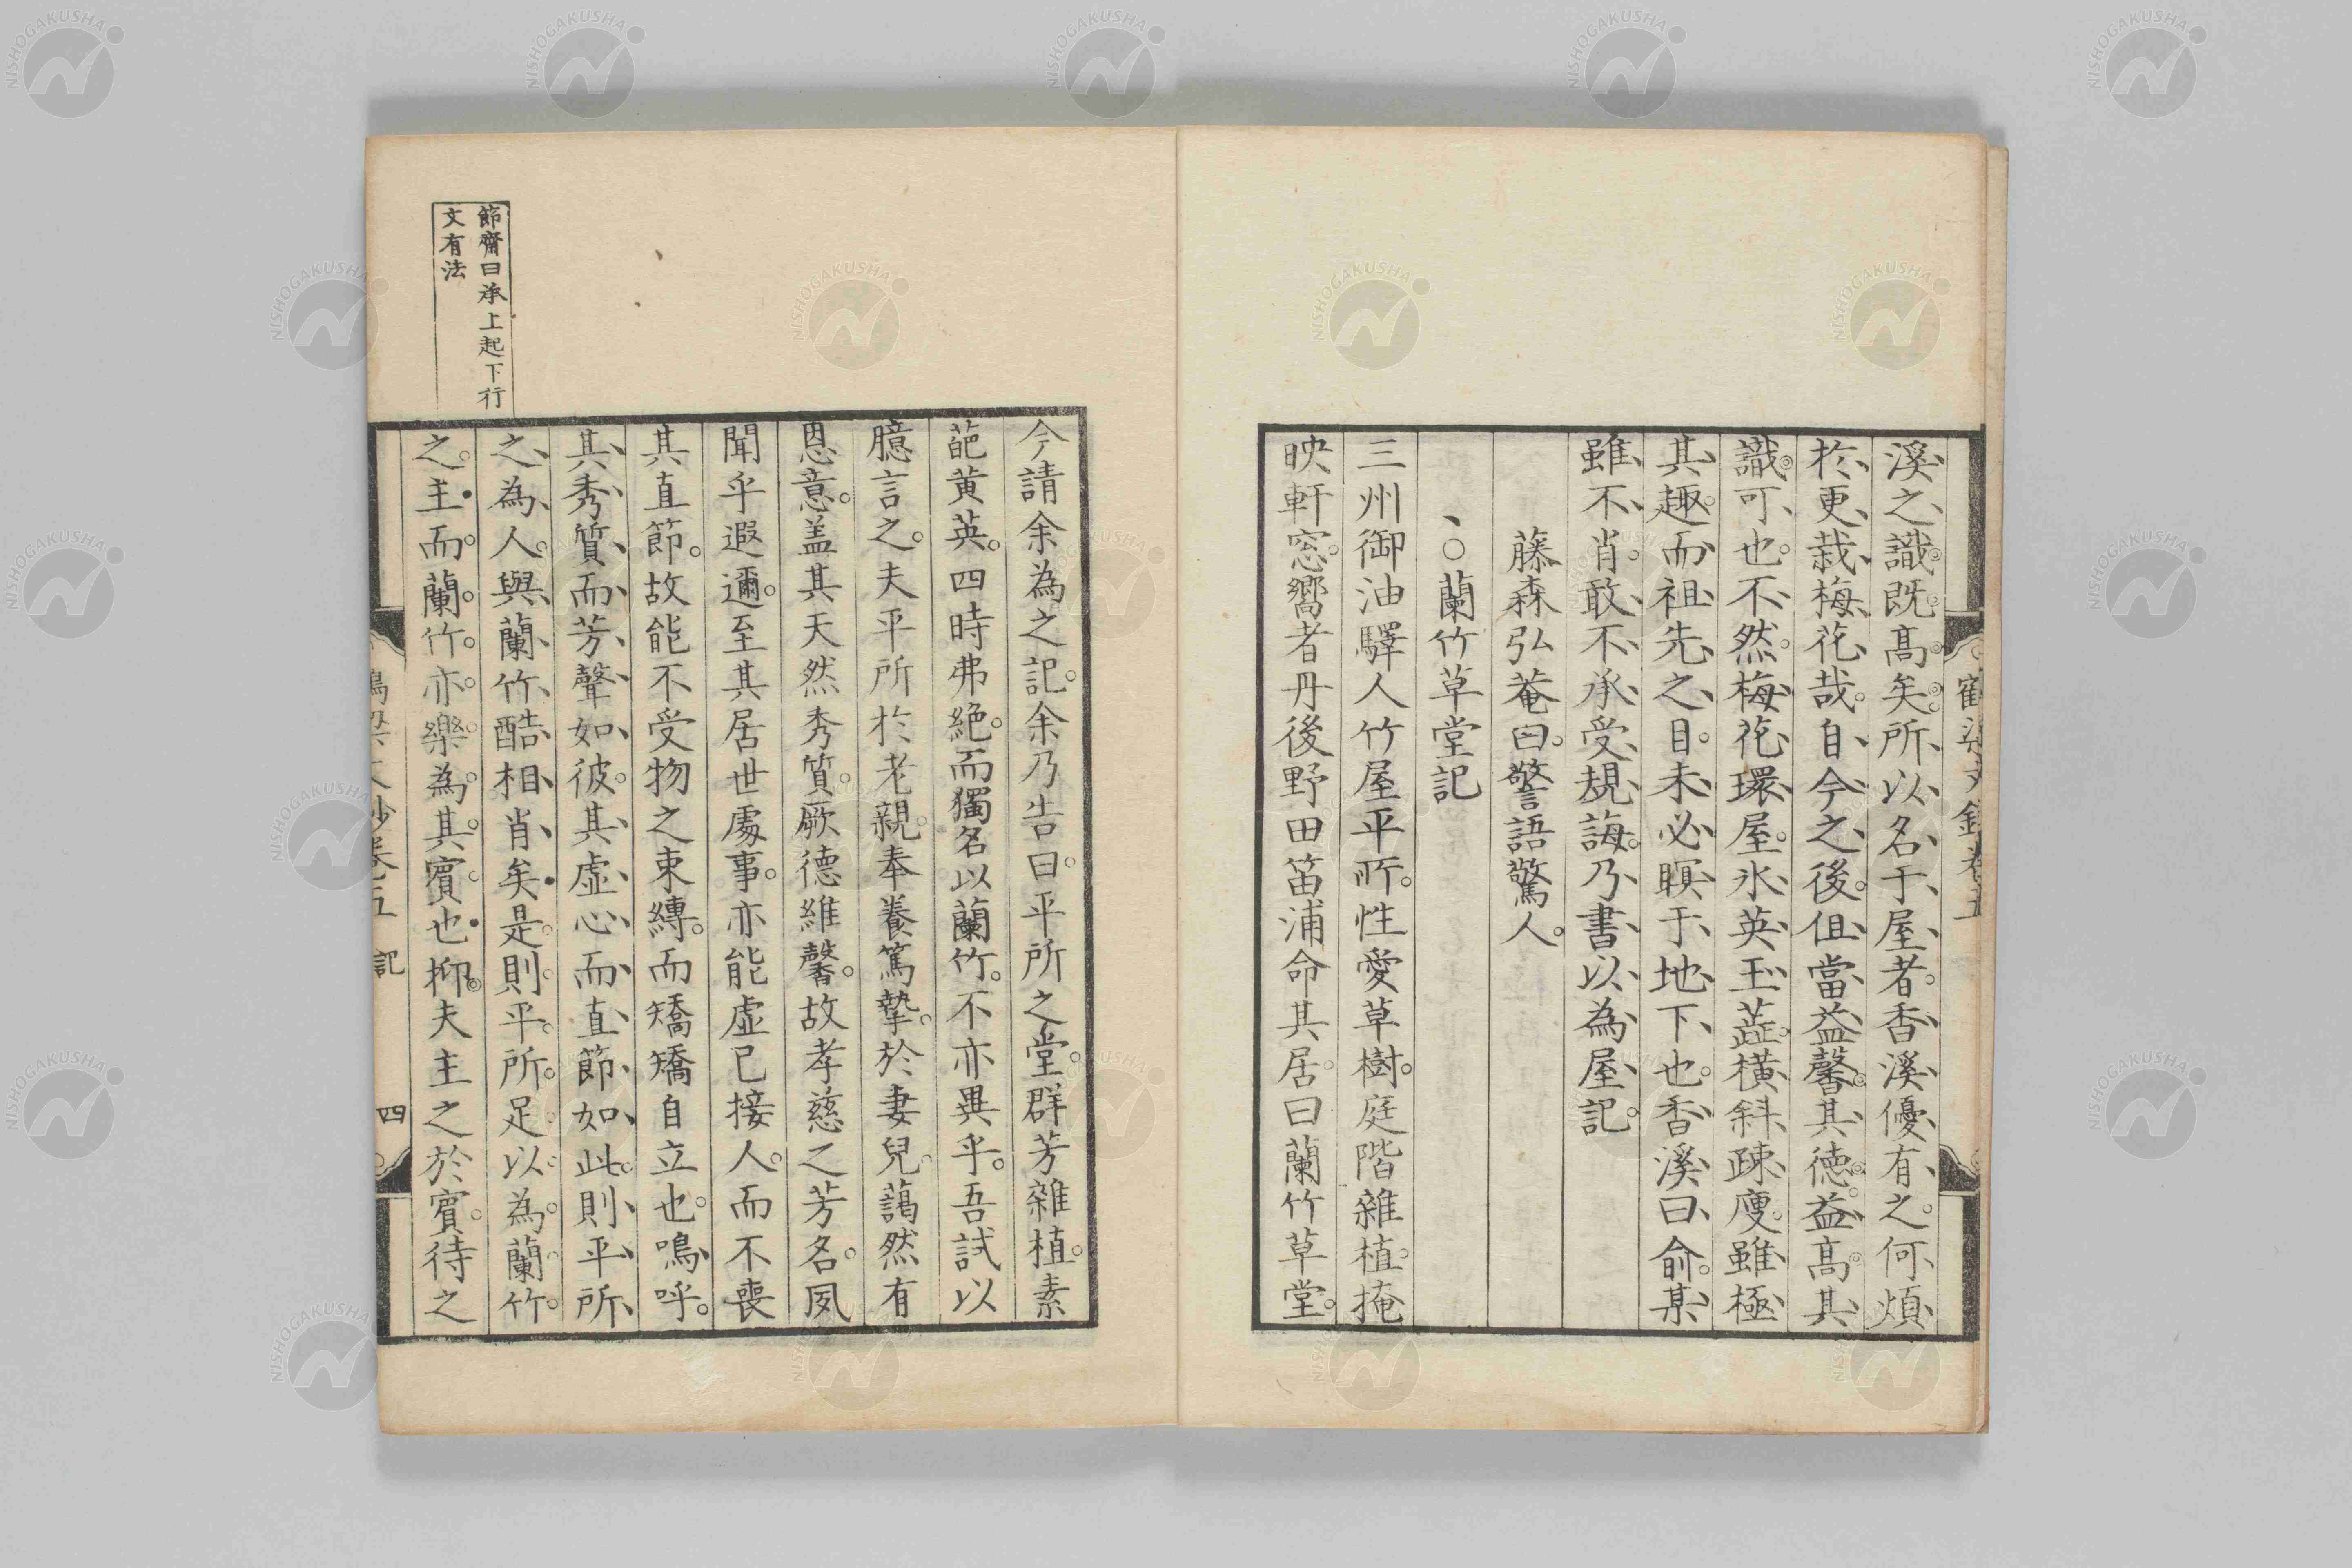 溪之識既高矣所以名于屋者香溪優有之何煩
於更栽梅花哉自今之後但當益馨其徳益高其
識可也不然梅花環屋氷英玉蕋橫斜疎廋雖極
其趣而祖先之目未必瞑于地下也香溪曰俞某
雖不肖敢不承受規誨乃書以為屋記
藤森弘菴曰警語驚人
、○蘭竹草堂記
三州御油驛人竹屋平所性愛草樹庭階雜植掩
映軒窓嚮者丹後野田笛浦命其居曰蘭竹草堂
今請余為之記余乃告曰平所之堂群芳雜植素
葩黄英四時弗絶而獨名以蘭竹不亦異乎吾試以
臆言之夫平所於老親奉養篤摯於妻兒藹然有
恩意盖其天然秀質厥德維馨故孝慈之芳名夙
聞乎遐邇至其居世處事亦能虚已接人而不喪
其直節故能不受物之束縛而矯矯自立也嗚呼
其秀質而芳聲如彼其虚心而直節如此則平所
之為人與蘭竹酷相肖矣是則平所足以為蘭竹
之主而蘭竹亦樂為其賓也抑夫主之於賓待之
節齋曰承上起下行
文有法
卷五 記
四
NISHOGAKUSHA